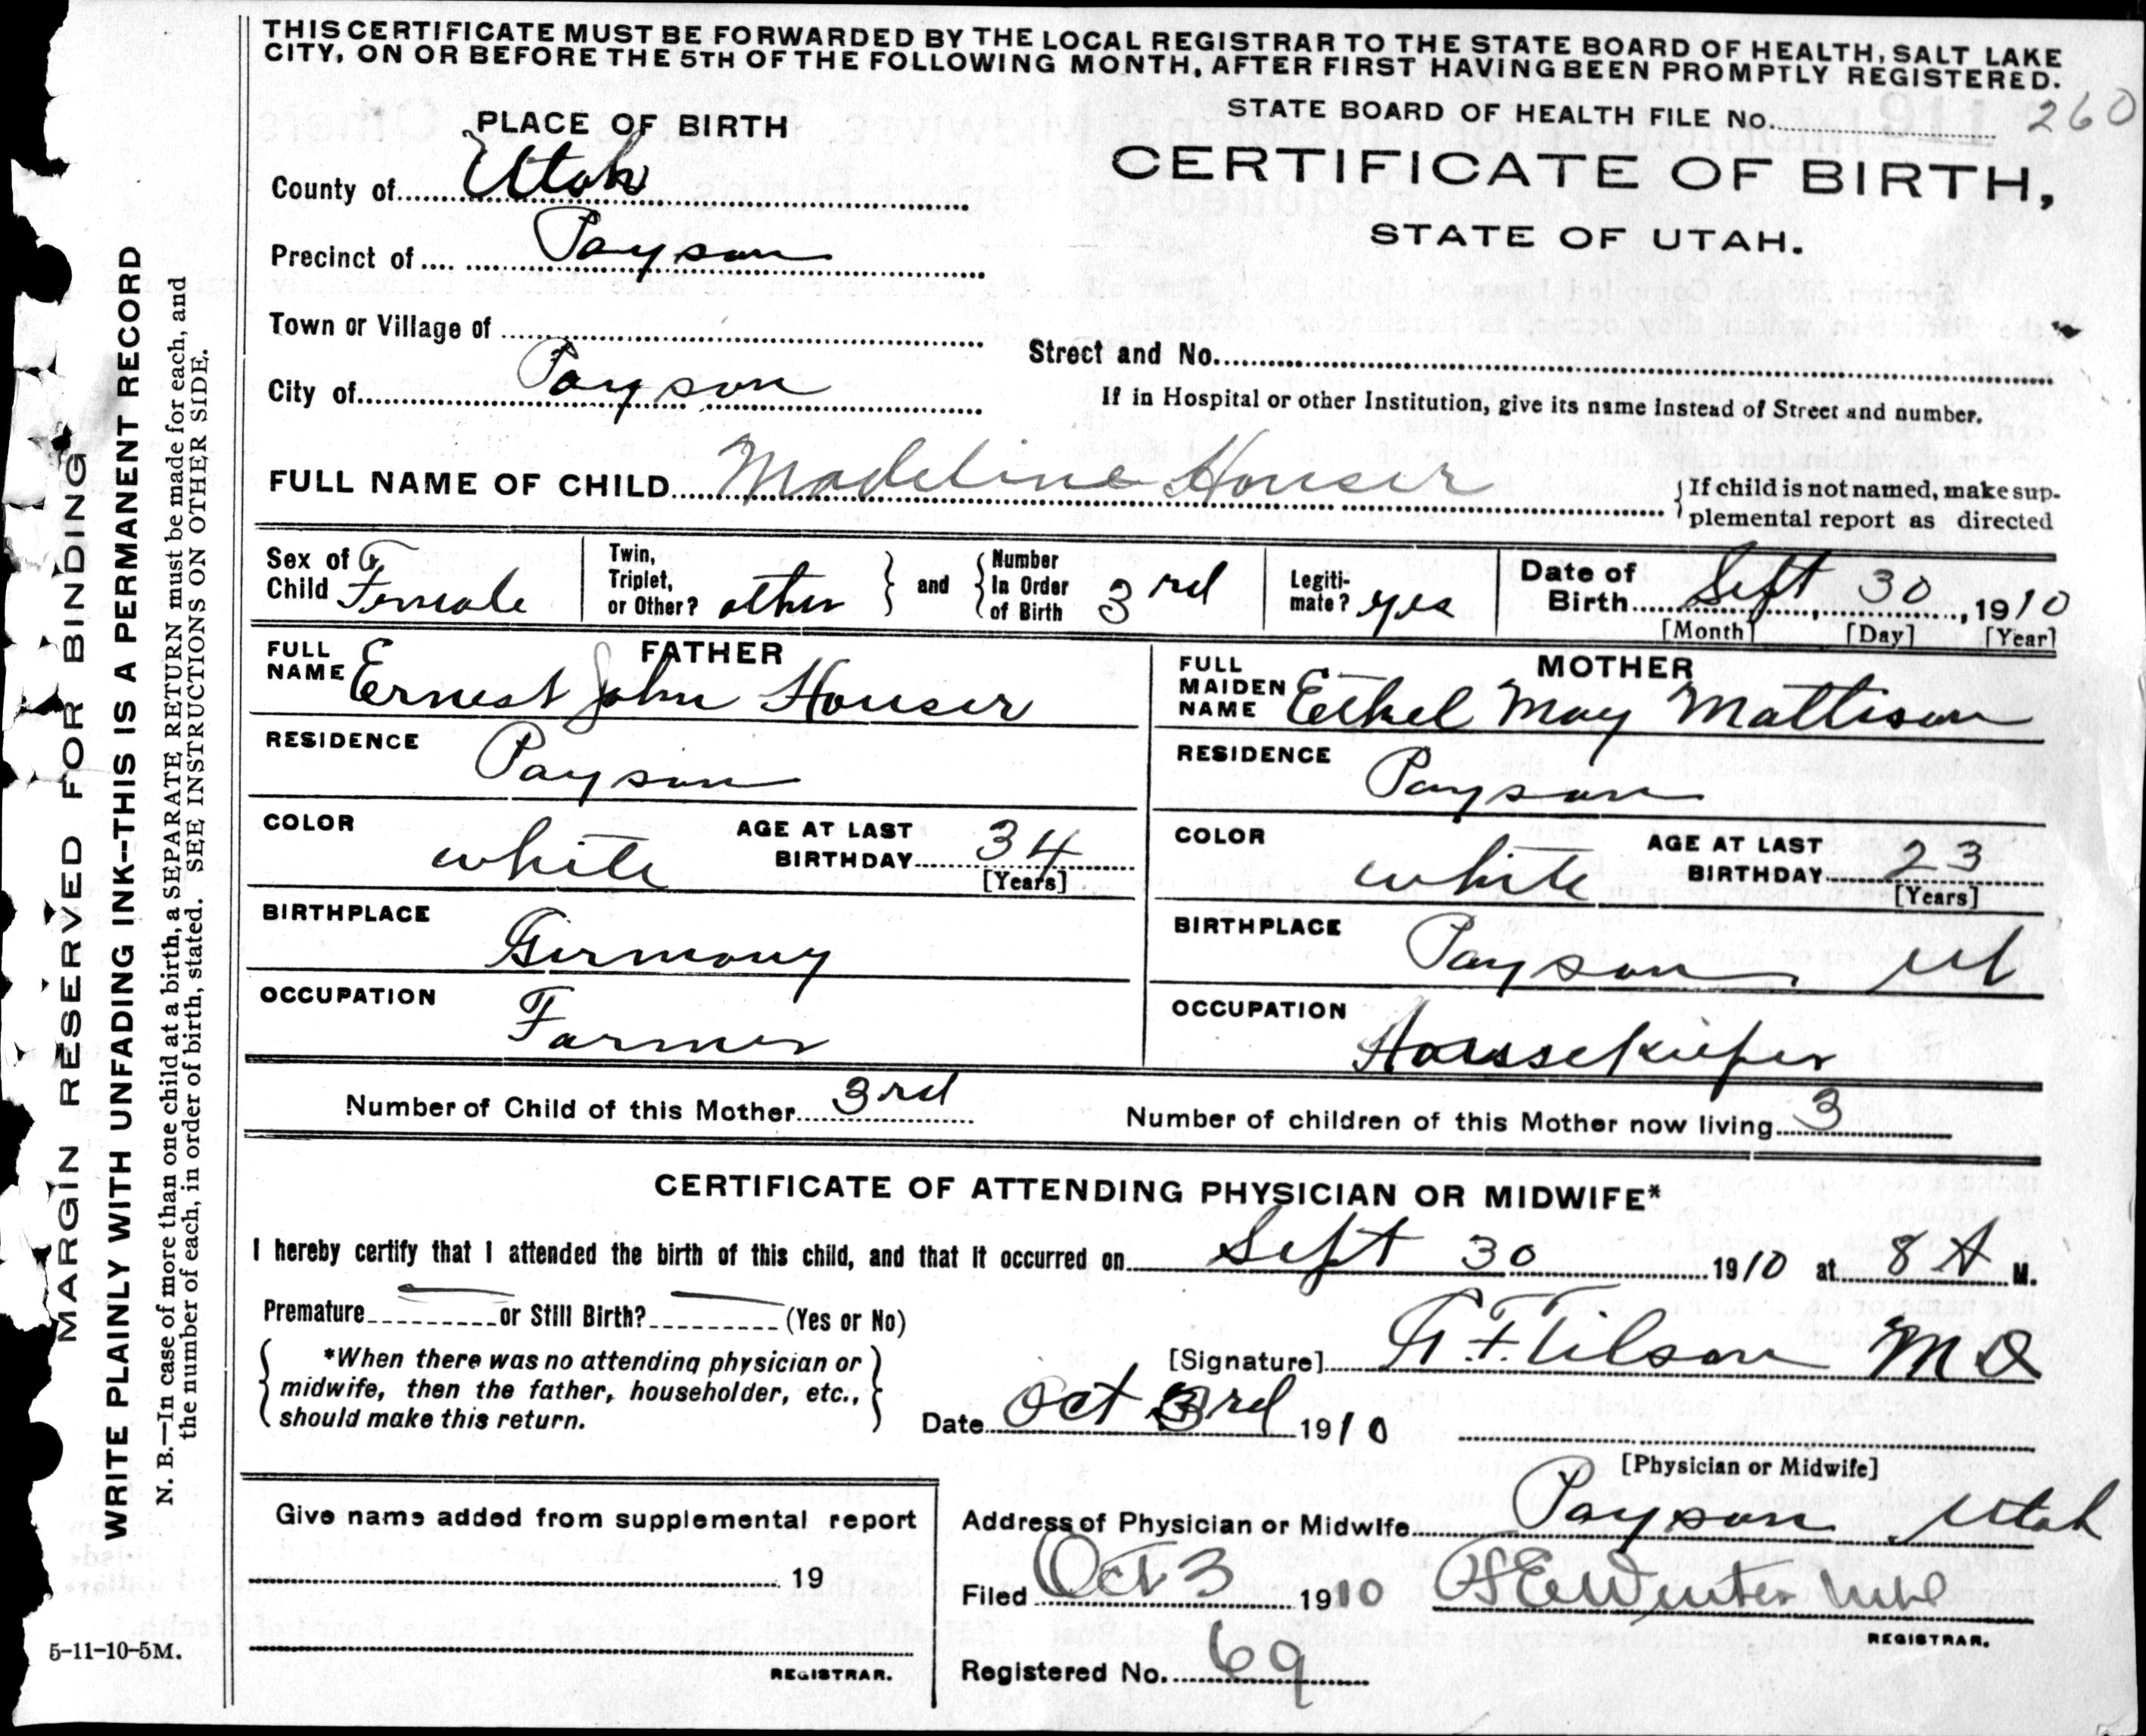 THIS CERTIFICATE MUST BE FORWARDED BY THE LOCAL REGISTRAR TO THE STATE BOARD OF HEALTH, SALT LAKE
CITY, ON OR BEFORE THE 5TH OF THE FOLLOWING MONTH, AFTER FIRST HAVING BEEN PROMPTLY REGISTERED.
STATE BOARD OF HEALTH FILE No. 260
PLACE OF BIRTH
CERTIFICATE OF BIRTH,
STATE OF UTAH.
County of Utah
Precinct of Payson
Town or Village of
Street and No.
City of Payson
If in Hospital or other Institution, give its name instead of Street and number.
FULL NAME OF CHILD Madeline Houser
If child is not named, make sup-
plemental report as directed
Sex of Child Female
Twin, Triplet, or Other? other and Number In Order of Birth 3rd
Legiti-mate? yes
Date of Birth Sept 30, 1910
[Month] [Day] [Year]
FATHER
FULL NAME Ernest John Houser
RESIDENCE Payson
COLOR white AGE AT LAST BIRTHDAY 34
[Years]
BIRTHPLACE Germany
OCCUPATION Farmer
MOTHER
FULL MAIDEN NAME Ethel May Mattison
RESIDENCE Payson
COLOR white AGE AT LAST BIRTHDAY 23
[Years]
BIRTHPLACE Payson Ut
OCCUPATION Houssekieper
Number of Child of this Mother 3rd
Number of children of this Mother now living 3
CERTIFICATE OF ATTENDING PHYSICIAN OR MIDWIFE*
I hereby certify that I attended the birth of this child, and that it occurred on Sept 30 1910 at 8 A M.
Premature or Still Birth? (Yes or No)
*When there was no attending physician or
midwife, then the father, householder, etc.,
should make this return.
[Signature] Tilson MD
Date Oct 3rd 1910
[Physician or Midwife]
Give name added from supplemental report
19
REGISTRAR.
Address of Physician or Midwife Payson, Utah
Filed Oct 3 1910 Winter
REGISTRAR.
Registered No. 69
5-11-10-5M.
MARGIN RESERVED FOR BINDING
WRITE PLAINLY WITH UNFADING INK--THIS IS A PERMANENT RECORD
N. B.—In case of more than one child at a birth, a SEPARATE RETURN must be made for each, and
the number of each, in order of birth, stated. SEE INSTRUCTIONS ON OTHER SIDE.